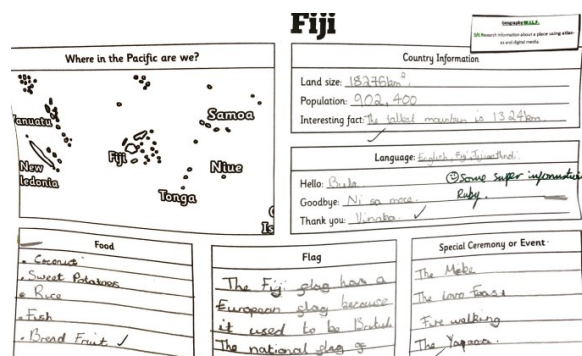 Fiji
Geography W.A.L.F.
Research information about a place using atlases and digital media.
Where in the Pacific are we?
anuatu
New
ledonia
Fiji
Samoa
Niue
Tonga
Is
Country Information
Land size: 18276km².
Population: 902,400
Interesting fact: The tallest mountain is 1324km.
Language: English, Fiji
Hello: Bula
Goodbye: Ni sa moce.
Thank you: Vinaka.
☺ Some super information
Ruby.
Food
• Coconut
• Sweet Potatoes
• Rice
• Fish
• Bread Fruit ✓
Flag
The Fiji flag has a
European flag because
it used to be British
The national flag of
Special Ceremony or Event
The Meke
The Lovo feast
Fire walking
The Yaqona